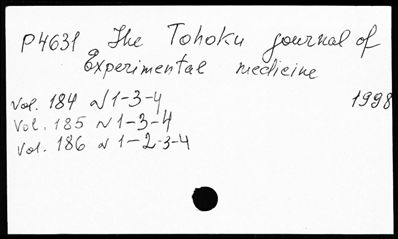 P4631 The Tohoku journal of
Experimental medicine
Vol. 184 N 1-3-4 1998
Vol. 185 N 1-3-4
Vol. 186 N 1-2-3-4